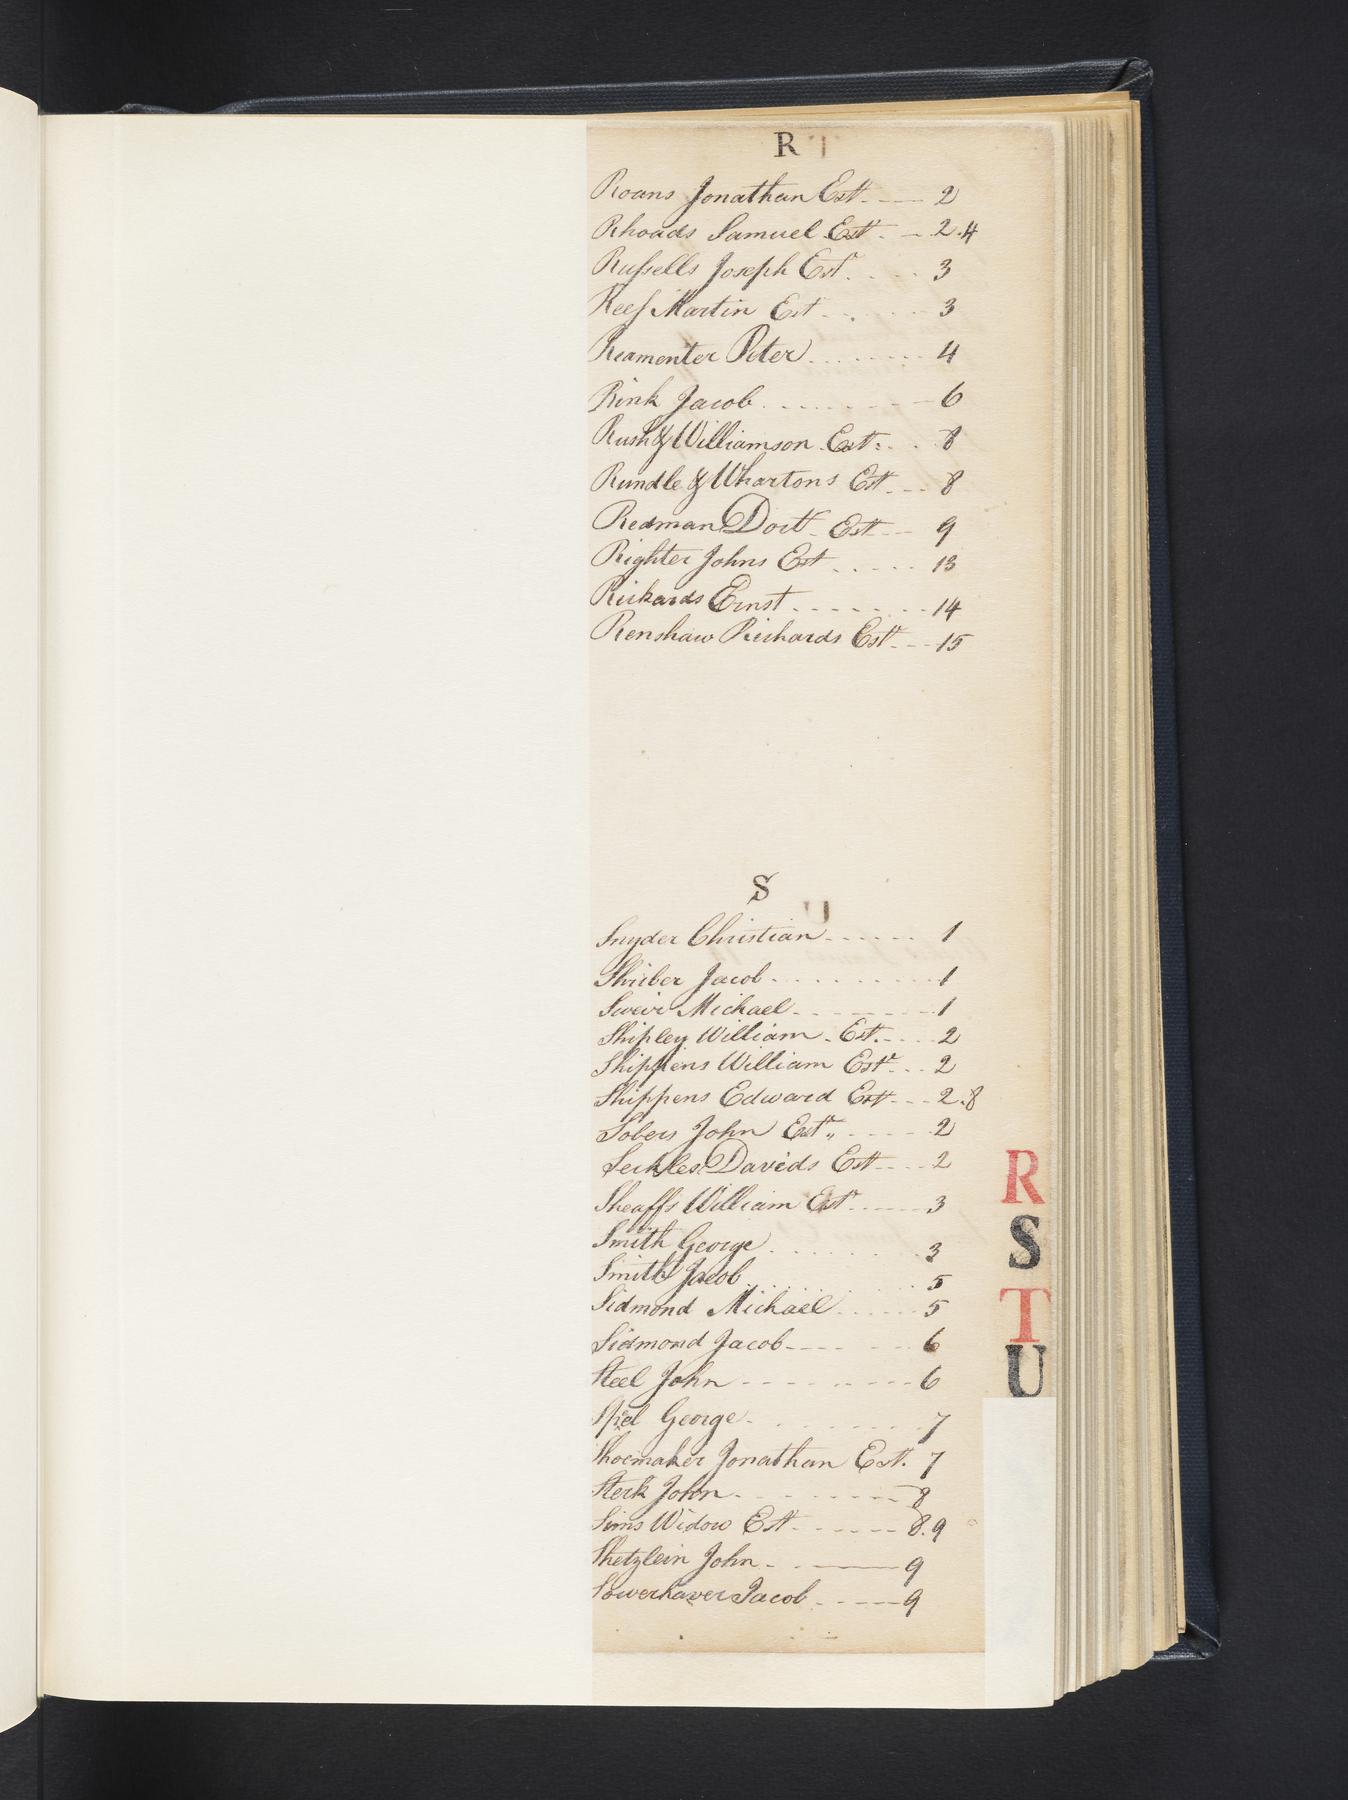 R
Roans Jonathan Est. 2
Rhoads Samuel Est. 2.4
Russells Joseph Estr. 3
Rees Martin Est 3
Reamenter Peter 4
Rink Jacob 6
Rush & Williamson Est: 8
Rundle & Whartons Est 8
Redman Doctr Est 9
Righter Johns Est 13
Rickards Ernst 14
Renshaw Richards Estr 15
S
Snyder Christian 1
Shriber Jacob 1
Sweir Michael 1
Shipley William Est. 2
Shippens William Estr 2
Shippens Edward Est 2.8
Sobers John Estr 2
Seckles Davids Est 2
Sheaffs William Estr 3
Smith George 3
Smith Jacob 5
Sidmond Michael 5
Sidmond Jacob 6
Steel John 6
Spiel George 7
Shoemaker Jonathan Est. 7
Sterk John 8
Sims Widow Est 8.9
Shetzlein John 9
Sowerhaver Jacob 9
R
S
T
U